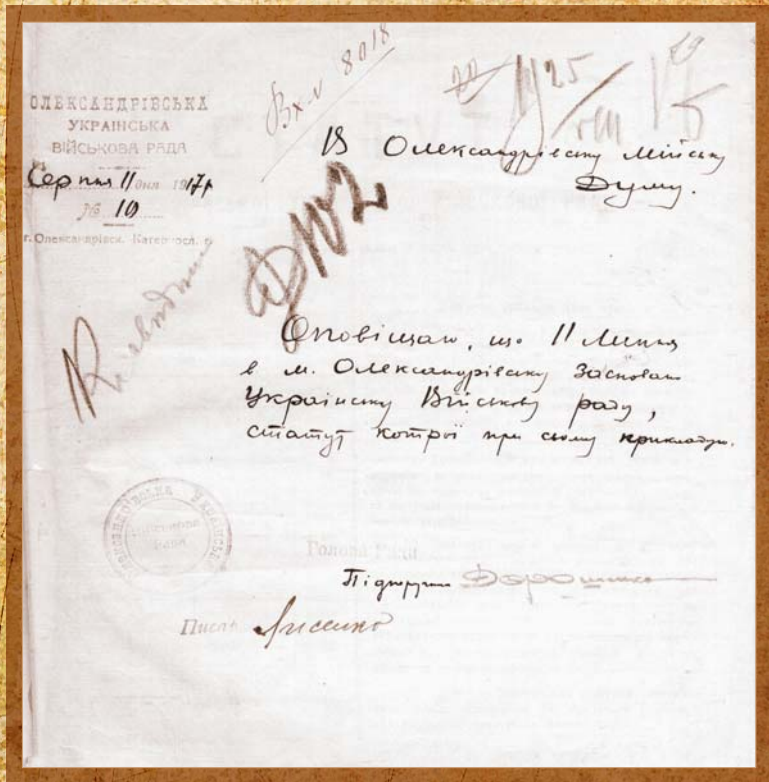 ОЛЕКСАНДРІВСЬКА
УКРАІНСЬКА
ВІЙСЬКОВА РАДА
Серпня 11 дня 1917р
№ 10
г. Олександрівск. Катериносл. г.
Вх. № 8018
В Олександрівську Мійську
Думу.
К
Оповіщаю, що 11 Липня
в м. Олександрівську Засновано
Украінську Військову раду,
статут котрої при сьому прикладую.
ОЛЕКСАНДРІВСЬКА УКРАІНСЬКА
ВІЙСЬКОВА
РАДА
Голова Ради
Підпоручик Дорошенко
Писар Лисенко